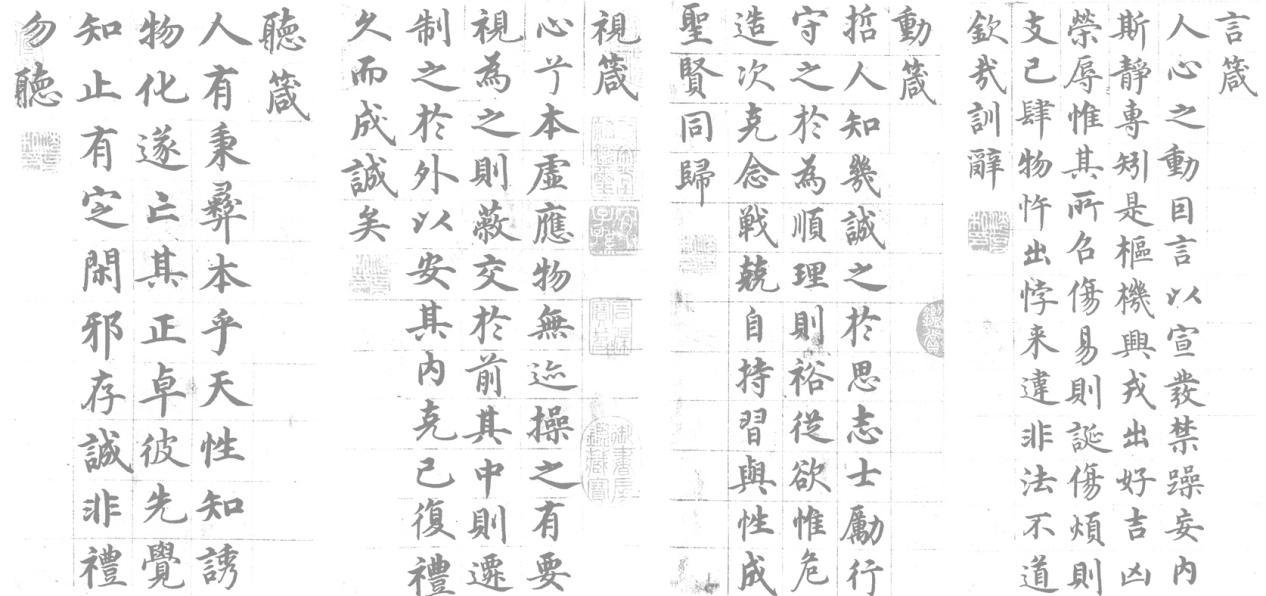 言箴
人心之動因言以宣發禁躁妄內
斯靜專矧是樞機興戎出好吉凶
榮辱惟其所召傷易則誕傷煩則
支己肆物忤出悖来違非法不道
欽哉訓辭
動箴
哲人知幾誠之於思志士勵行
守之於為順理則裕從欲惟危
造次克念戦兢自持習與性成
聖賢同歸
視箴
心兮本虛應物無迹操之有要
視為之則蔽交於前其中則遷
制之於外以安其內克己復禮
久而成誠矣
聽箴
人有秉彝本乎天性知誘
物化遂亡其正卓彼先覺
知止有定閑邪存誠非禮
勿聽